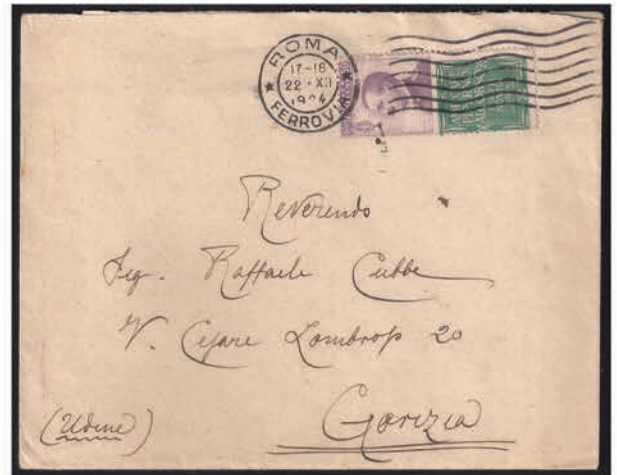 ROMA
17-18
22·XII
1924
FERROVIA
Reverendo
Sig. Raffaele Cubbe
V. Cesare Lombroso 20
(Udine) Gorizia